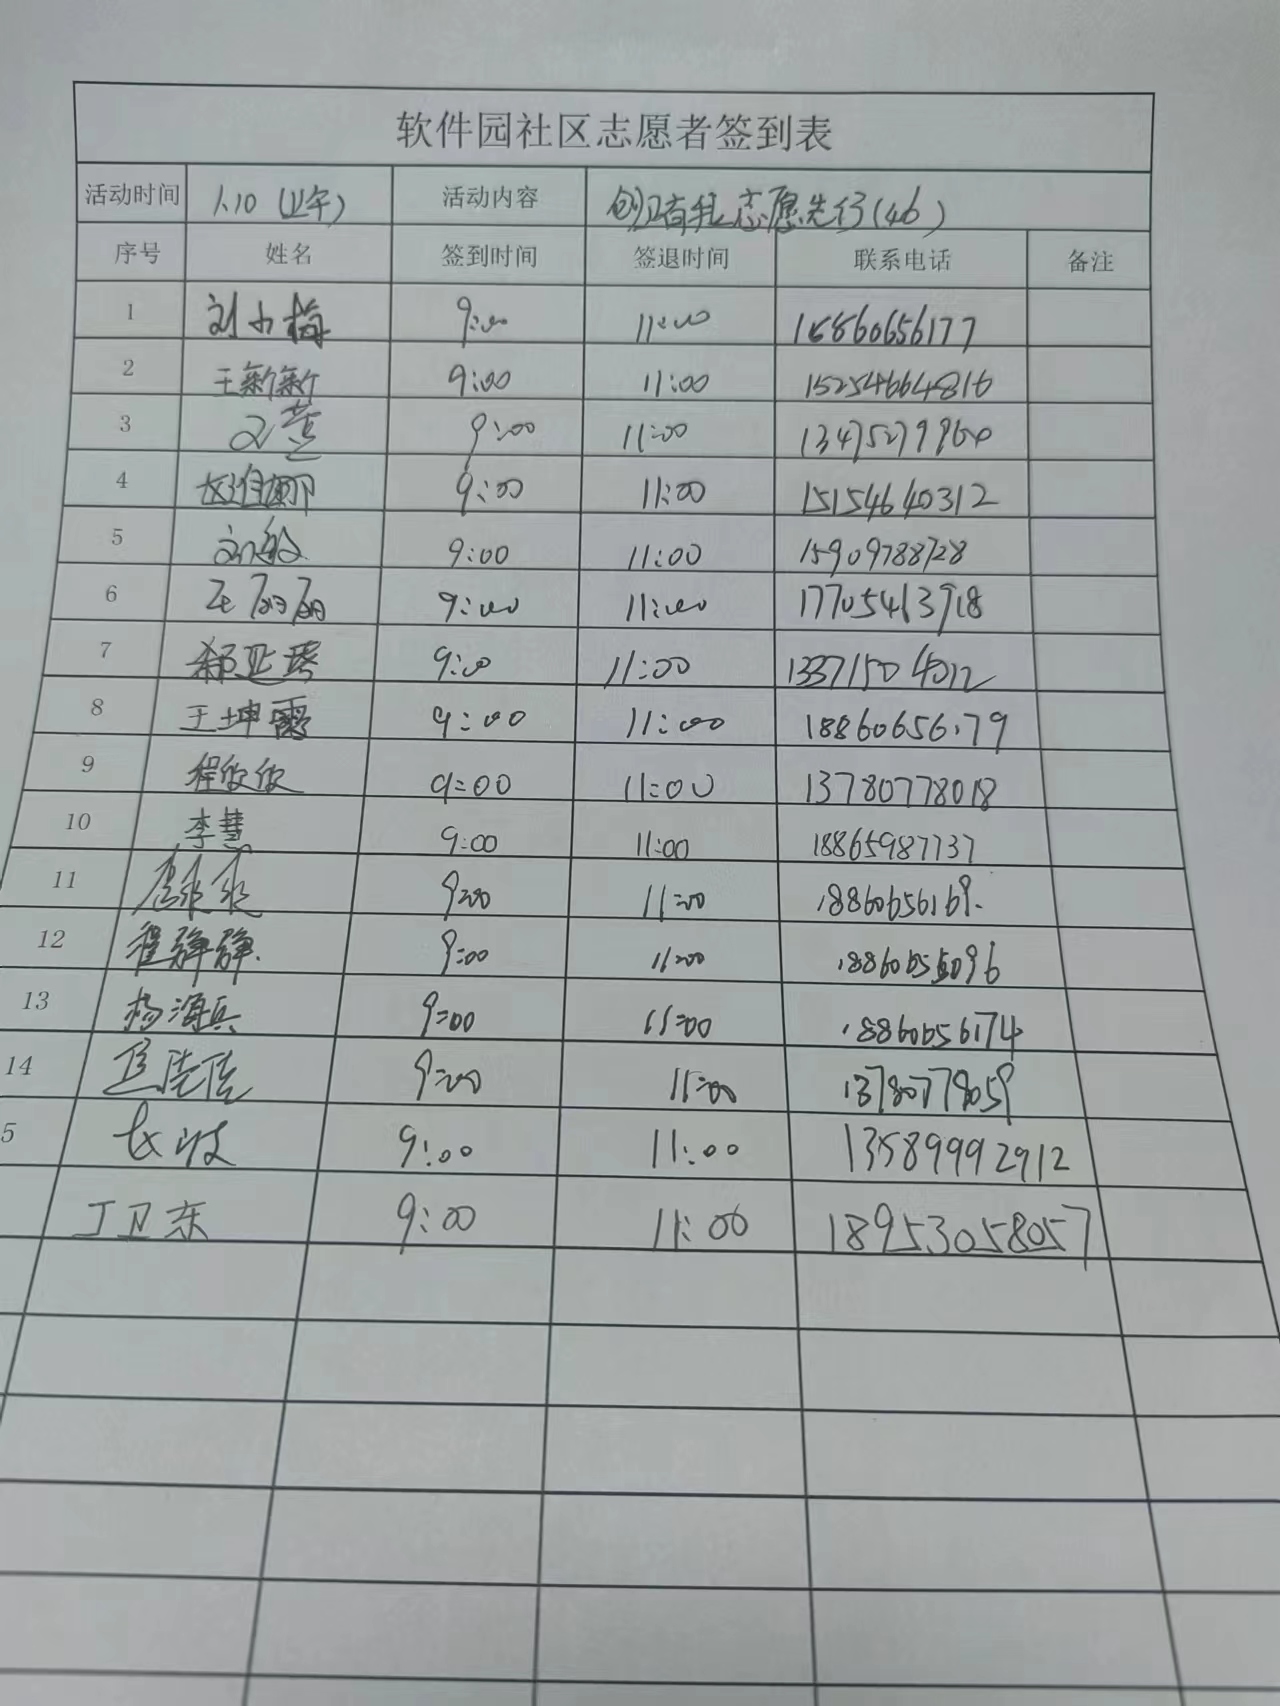 软件园社区志愿者签到表
活动时间 1.10 (上午) 活动内容 创城有我 志愿先行(46)
序号 姓名 签到时间 签退时间 联系电话 备注
1 刘小梅 9:00 11:00 18860656177
2 王新新 9:00 11:00 15254664816
3 9:00 11:00 13475279960
4 9:00 11:00 15154640312
5 刘敏 9:00 11:00 15909788728
6 9:00 11:00 17705463918
7 9:00 11:00 13371504012
8 王坤霞 9:00 11:00 18860656179
9 程俊俊 9:00 11:00 13780778018
10 李慧 9:00 11:00 18865987737
11 9:00 11:00 18860656169
12 程静静 9:00 11:00 18860655096
13 杨海兵 9:00 11:00 18860656174
14 9:00 11:00 13780778059
5 9:00 11:00 13589992912
丁卫东 9:00 11:00 18953058057